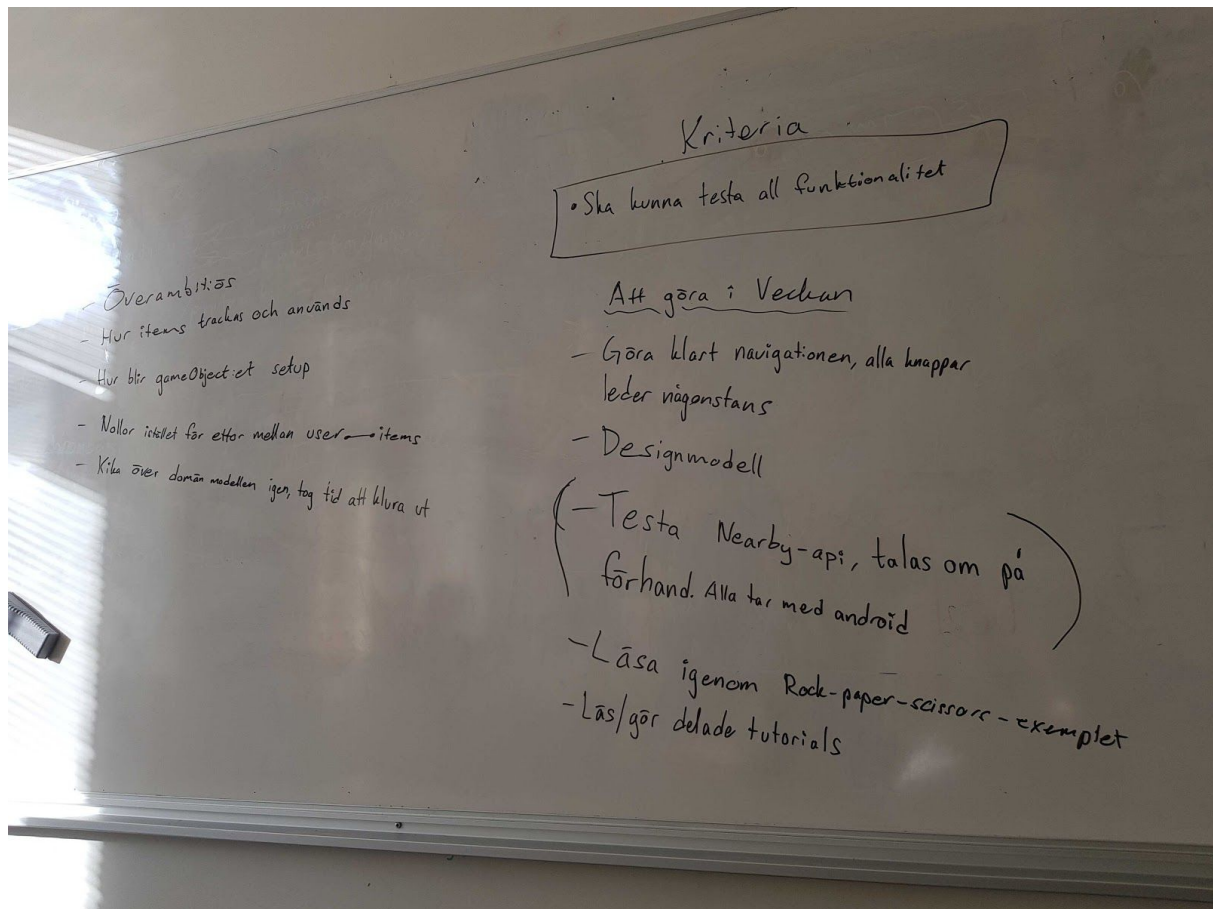 - Överambitiös
- Hur items trackas och används
- Hur blir gameObject:et setup
- Nollor istället för ettor mellan user — items
- Kika över domän modellen igen, tog tid att klura ut
Kriteria
• Ska kunna testa all funktionalitet
Att göra i Veckan
- Göra klart navigationen, alla knappar
leder någonstans
- Designmodell
(- Testa Nearby-api, talas om på
förhand. Alla tar med android)
- Läsa igenom Rock-paper-scissors-exemplet
- Läs/gör delade tutorials